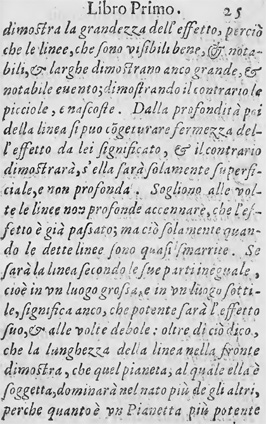 Libro Primo. 25
dimostra la grandezza dell'effetto, perciò
che le linee, che sono visibili bene, & nota-
bili, & larghe dimostrano anco grande, &
notabile euento; dimostrando il contrario le
picciole, e nascoste. Dalla profondità poi
della linea si puo cōgeturare fermezza del-
l'effetto da lei significato, & il contrario
dimostrarà, s'ella sarà solamente superfi-
ciale, e non profonda. Sogliono alle vol-
te le linee non profonde accennare, che l'ef-
fetto è già passato; ma ciò solamente quan-
do le dette linee sono quasi smarrite. Se
sarà la linea secondo le sue parti ineguale,
cioè in vn luogo grossa, e in vn luogo sotti-
le, significa anco, che potente sarà l'effetto
suo, & alle volte debole: oltre di ciò dico,
che la lunghezza della linea nella fronte
dimostra, che quel pianeta, al quale ella è
soggetta, dominarà nel nato più de gli altri,
perche quanto è vn Pianetta più potente